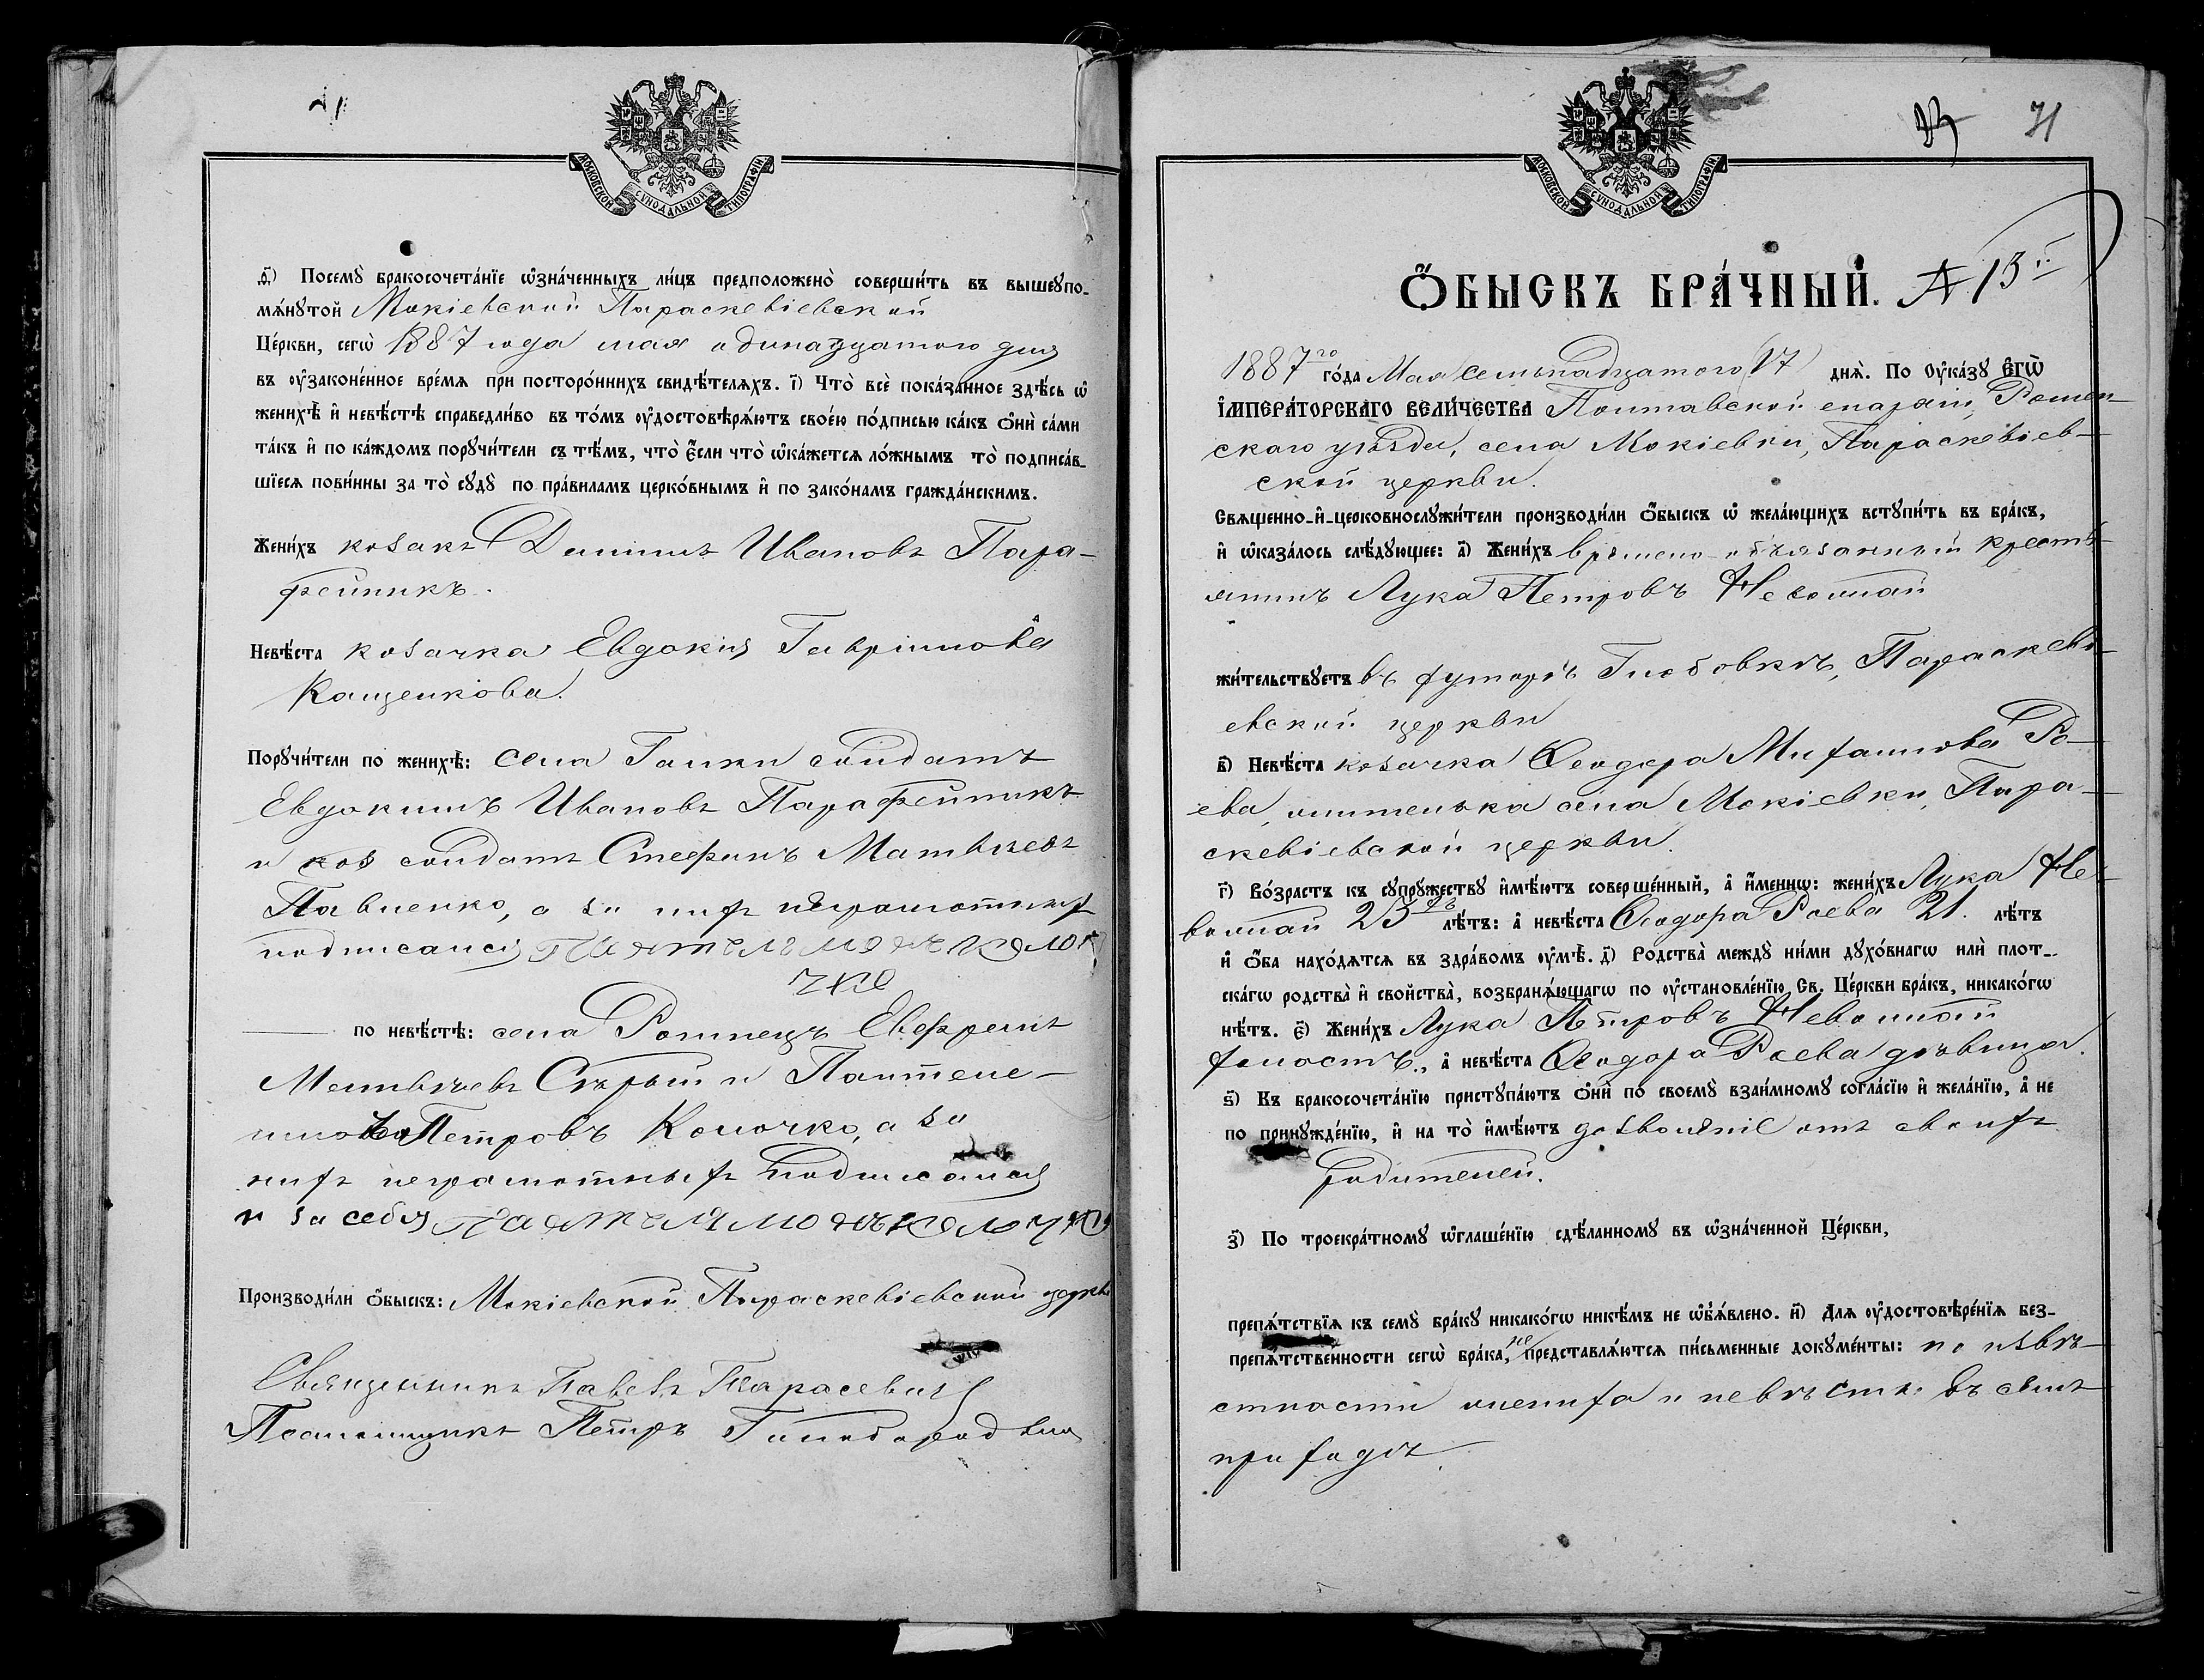 МОСКОВСКОЙ СѴНОДАЛЬНОЙ ТИПОГРАФІИ
ѳ҃) Посемꙋ̀ бракосочета́нїе ѡ҆зна́ченныхъ ли́цъ предположено̀ соверши́ть въ вышеꙋпо-
мѧ́нꙋтой Мокіевской Параскевіевской
Це́ркви, сегѡ̀ 1887 года мая одинадцатого дня
въ ᲂу҆законе́нное вре́мѧ при посторо́ннихъ свидѣ́телѧхъ. і҃) Что̀ всѐ пока́занное здѣ́сь ѡ҆
женихѣ̀ и҆ невѣ́стѣ справедли́во въ то́мъ ᲂу҆достовѣрѧ́ютъ свое́ю по́дписью ка́къ ѻ҆нѝ са́ми
та́къ и҆ по ка́ждомъ порꙋчи́тели съ тѣ́мъ, что̀ є҆́сли что̀ ѡ҆ка́жетсѧ ло́жнымъ то̀ подписа́в-
шїесѧ пови́нны за то̀ сꙋдꙋ̀ по пра́виламъ церко́внымъ и҆ по зако́намъ гражда́нскимъ.
Жени́хъ козакъ Даниилъ Ивановъ Пара-
фейникъ.
Невѣ́ста козачка Евдокия Гавріилова
Кащенкова.
Порꙋчи́тели по женихѣ̀: села Галки солдатъ
Евдокимъ Ивановъ Парафейникъ
и коз солдатъ Стефанъ Матвѣевъ
Павленко, а за нихъ неграмотныхъ
подписался Пантелимонъ Колю
чко
по невѣ́стѣ: села Ромнецъ Евфремъ
Матвѣевъ Сѣрый и Пантеле-
имонъ Петровъ Колючко, а за
нихъ неграмотныхъ подписался
и за себя Пантелимонъ Колючко
Производи́ли ѻ҆́быскъ: Мокіевской Параскевіевской церкви
Священникъ Павелъ Тарасевичъ
Псаломщикъ Петръ
71
МОСКОВСКОЙ СѴНОДАЛЬНОЙ ТИПОГРАФІИ
Ѻ҆́БЫСКЪ БРА́ЧНЫЙ. № 13й
1887го го́да Мая семьнадцатого (17) днѧ̀. По Оу҆ка́зꙋ Є҆гѡ̀
І҆мпера́торскагѡ Вели́чества Полтавской епархіи, Ромен-
скаго уѣзда, села Мокіевки, Параскевіев-
ской церкви.
Свѧщенно-и҆-церковнослꙋжи́тели производи́ли ѻ҆́быскъ ѡ҆ жела́ющихъ встꙋпи́ть въ бра́къ,
и҆ ѡ҆каза́лось слѣ́дꙋющее: а҃) Жени́хъ временно-обязанный кресть
янинъ Лука Петровъ Неволпай
жи́тельствꙋетъ въ хуторѣ Глюбовкѣ, Параскеві-
евской церкви
в҃) Невѣ́ста козачка Ѳеодора Михаилова Ро-
ева, жителька села Мокіевки, Пара-
скевіевской церкви.
г҃) Во́зрастъ къ сꙋпрꙋ́жествꙋ и҆мѣ́ютъ соверше́нный, а҆ и҆́меннѡ: жени́хъ Лука Не-
волпай 23хъ лѣ́тъ: а҆ невѣ́ста Ѳеодора Роева 21. лѣ́тъ
и҆ ѻ҆́ба нахо́дѧтсѧ въ здра́вомъ ᲂу҆мѣ̀. д҃) Родства̀ междꙋ̀ ни́ми дꙋхо́внагѡ илѝ плот-
ска́гѡ родства̀ и҆ свойства̀, возбранѧ́ющагѡ по ᲂу҆становле́нїю Св. Це́ркви бра́къ, никако́гѡ
нѣ́тъ. є҃) Жени́хъ Лука Петровъ Неволпай
холостъ., а҆ невѣ́ста Ѳеодора Роева дѣвица.
ѕ҃) Къ бракосочета́нїю пристꙋпа́ютъ ѻ҆нѝ по своемꙋ̀ взаи́мномꙋ согла́сїю и҆ жела́нїю, а҆ не
по принꙋжде́нїю, и҆ на то̀ и҆мѣ́ютъ дозволеніе отъ своихъ
родителей.
з҃) По троекра́тномꙋ ѡ҆глаше́нїю сдѣ́ланномꙋ въ ѡ҆зна́ченной Це́ркви,
препѧ́тствїѧ къ семꙋ̀ бра́кꙋ никако́гѡ никѣ́мъ не ѡ҆б̾ѧ́влено. и҃) Длѧ ᲂу҆достовѣре́нїѧ без-
препѧ́тственности сегѡ̀ бра́ка, не представлѧ́ютсѧ пи́сьменные докꙋме́нты: по извѣ-
стности жениха и невѣсты въ семъ
приходѣ.